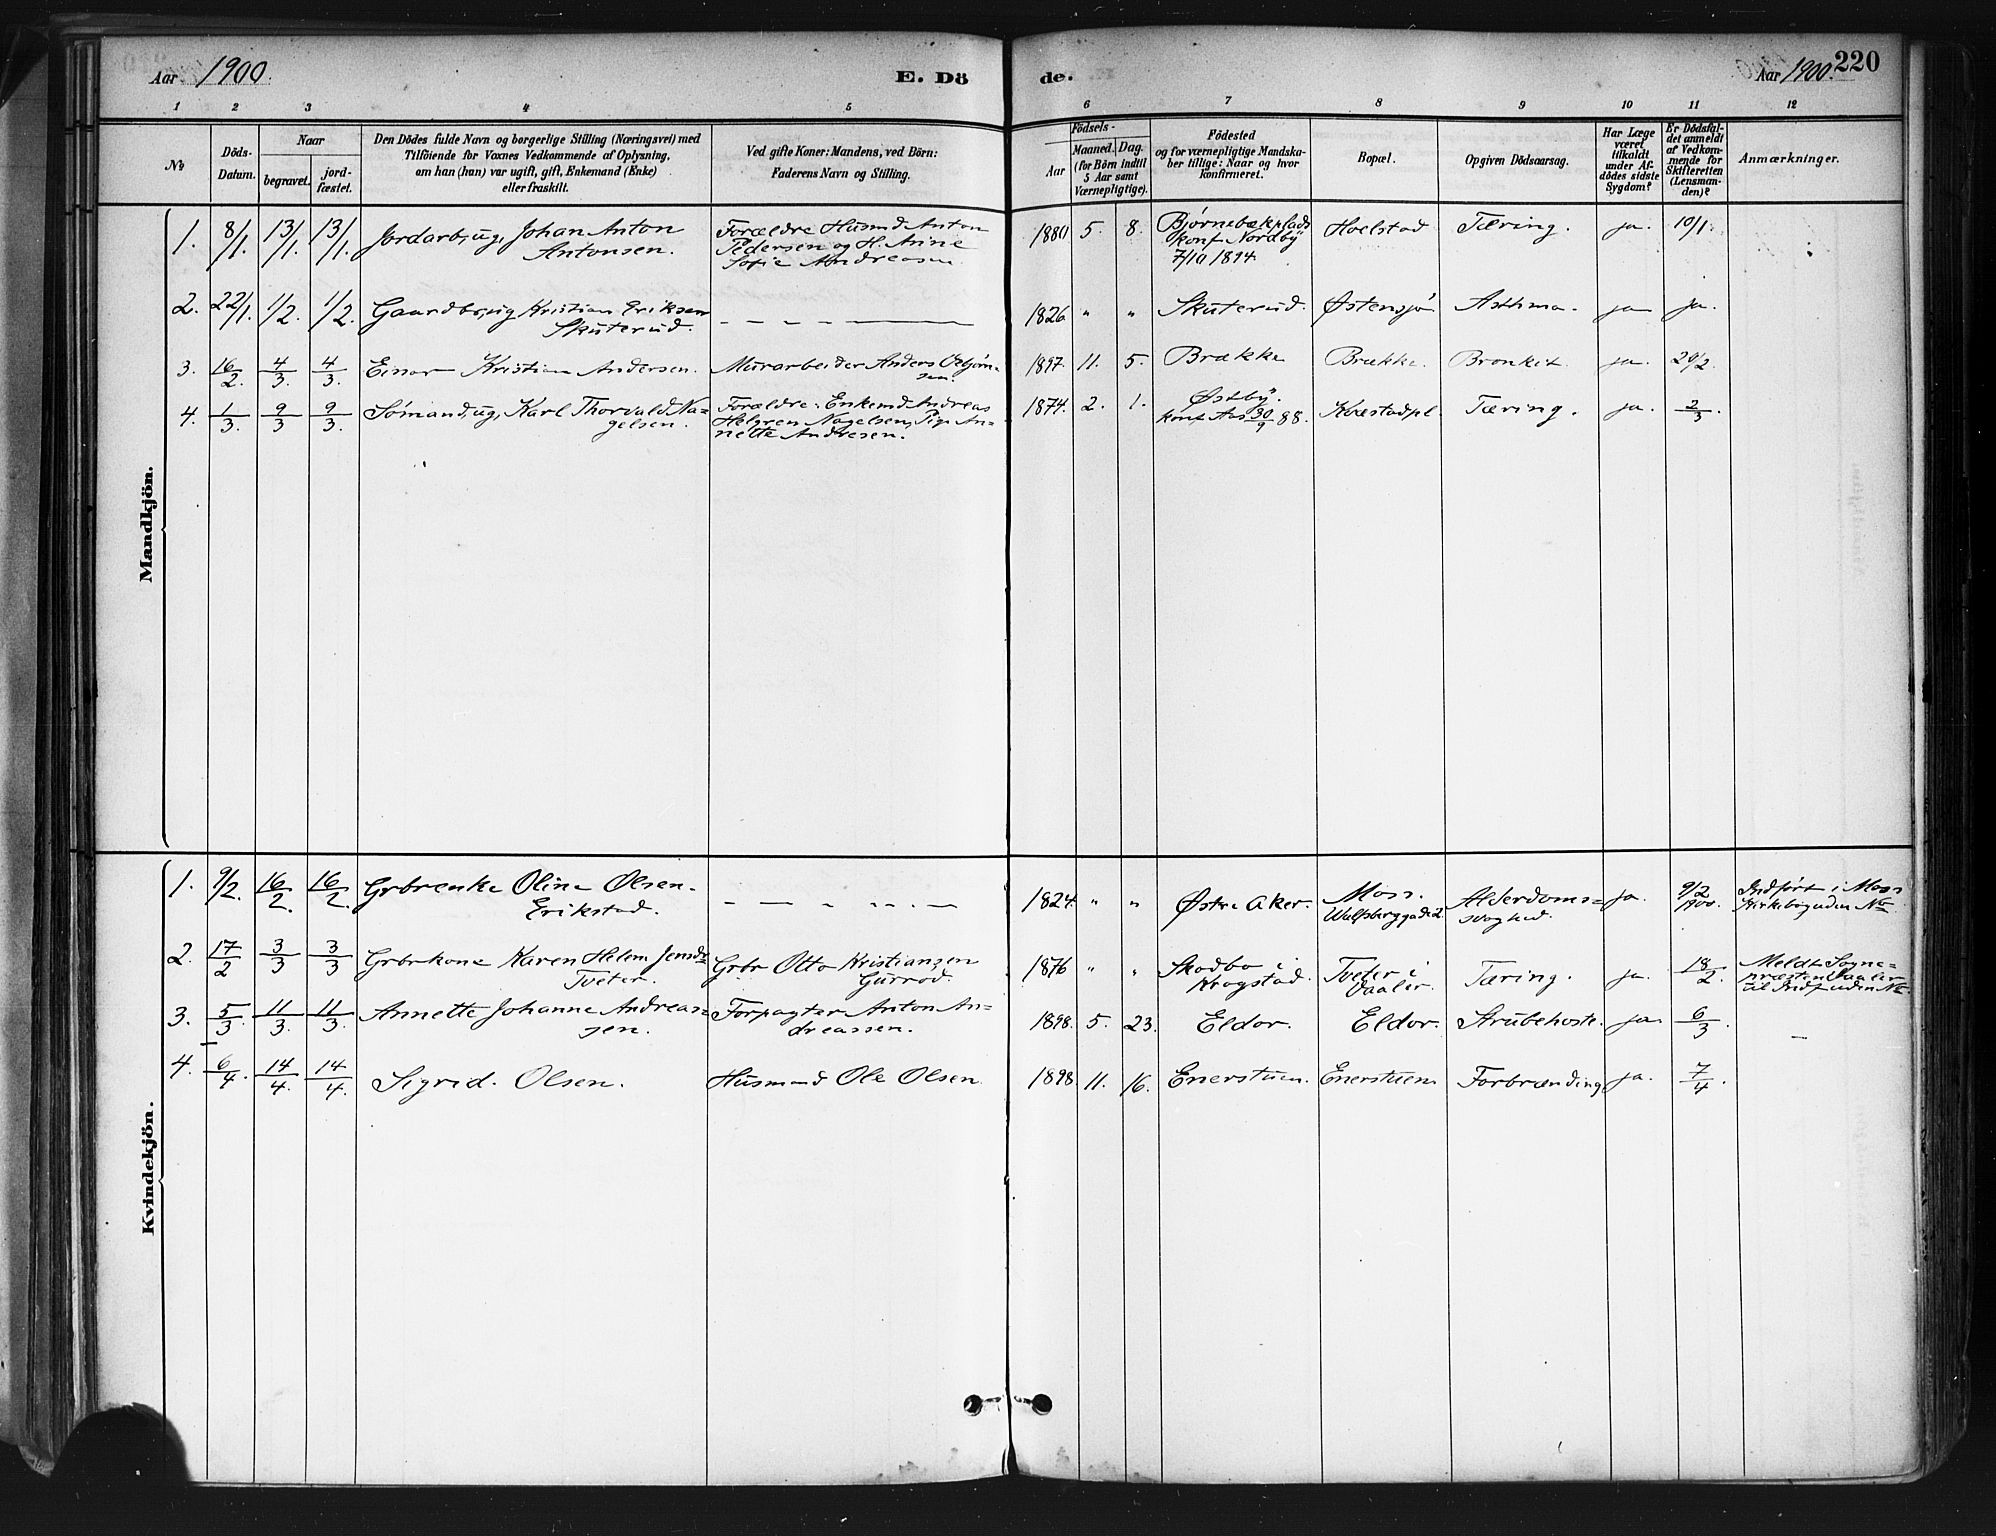 Aar 1900.
E. Dö
de.
Aar 1900. 220
1 2 3 4 5 6 7 8 9 10 11 12
No
Döds-
Datum.
Naar
begravet.
jord-
fæstet.
Den Dödes fulde Navn og borgerlige Stilling (Næringsvei) med
Tilföiende for Voxnes Vedkommende af Oplysning,
om han (hun) var ugift, gift, Enkemand (Enke)
eller fraskilt.
Ved gifte Koner: Mandens, ved Börn:
Faderens Navn og Stilling.
Födsels-
Aar
Maaned. Dag.
(for Börn indtil
5 Aar samt
Værnepligtige).
Födested
og for værnepligtige Mandska-
ber tillige: Naar og hvor
konfirmeret.
Bopæl.
Opgiven Dödsaarsag.
Har Læge
været
tilkaldt
under Af-
dödes sidste
Sygdom?
Er Dödsfal-
det anmeldt
af Vedkom-
mende for
Skifteretten
(Lensman-
den)?
Anmærkninger.
Mandkjön.
1. 8/1. 13/1. 13/1. Jordarb, ug, Johan Anton
Antonsen.
Forældre Husmd Anton
Pedersen og H. Anine
Sofie Andreasen
1880 5. 8. Bjørnebækplads
konf Nordby
7/10 1894.
Holstad Tæring. ja. 10/1.
2. 22/1. 1/2. 1/2. Gaardbr, ug Kristian Eriksen
Skuterud.
1826. " " Skuterud. Østensjø Asthma. ja ja.
3. 16/2. 4/3. 4/3. Einar Kristian Andersen. Murarbeider Anders
1897. 11. 5. Brække Brække. Bronkit. ja. 20/2.
4. 1/3. 9/3 9/3 Sømand, ug, Karl Thorvald Na-
gelsen.
Forældre: Enkemd Andreas
Helgren Nagelsen, Pige An-
nette Andresen.
1874. 2. 1. Østby.
konf Aas 30/9 88.
Kværstadpl Tæring. ja. 2/3.
Kvindekjön.
1. 9/2. 16/2. 16/2. Grbrenke Oline Olsen.
Erikstad.
1824. " " Østre Aker. Moss.
Wulfsberggade 2.
Alderdoms-
svaghed.
ja. 9/2
1900.
Indført i Moss
Kirkebog uden No
2. 17/2 3/3 3/3 Grbrkone Karen Helene Jensdr
Tveter.
Grbr Otto Kristiansen
Gurrod.
1876 " " Skodbo i
Krogstad.
Tveter i
Vaaler.
Tæring. ja. 18/2.
Meldt Sogne-
præsten i Vaaler
til Indf uden No.
3. 5/3. 11/3. 11/3. Annette Johanne Andreas-
sen.
Forpagter Anton An-
dreassen.
1898. 5. 23. Eldor. Eldor. Strubehoste. ja. 6/3
4. 6/4. 14/4. 14/4. Sigrid. Olsen. Husmand Ole Olsen.
1898 11. 16. Enerstuen. Enerstuen Forbrænding ja. 7/4.